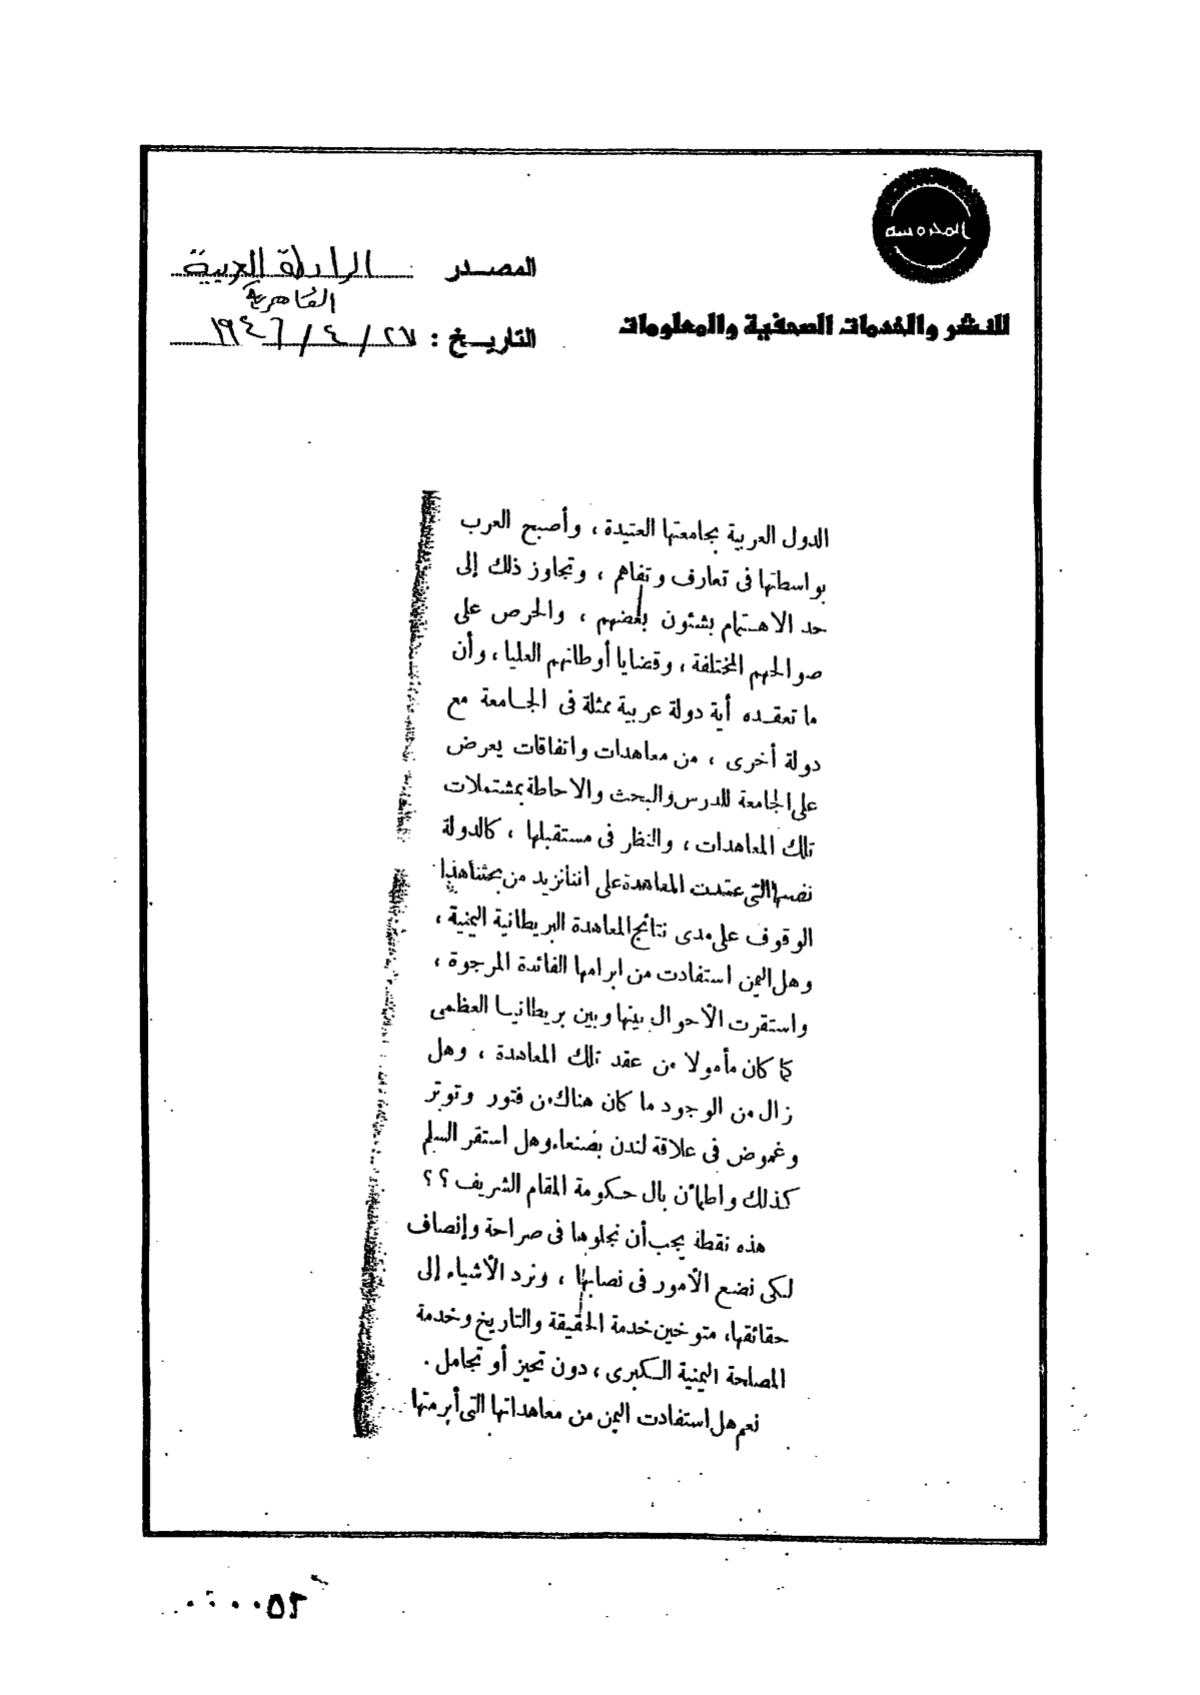 المحروسة
للنشر والخدمات الصحفية والمعلومات
المصدر الرابطة العربية
القاهرية
التاريخ : ٢٧ / ٤ / ١٩٤٦
الدول العربية بجامعتها العتيدة ، وأصبح العرب
بواسطتها فى تعارف وتفاهم ، وتجاوز ذلك إلى
حد الاهتمام بشئون بعضهم ، والحرص على
صوالحهم المختلفة ، وقضايا أوطانهم العليا ، وأن
ما تعقده أية دولة عربية ممثلة فى الجامعة مع
دولة أخرى ، من معاهدات واتفاقات يعرض
على الجامعة للدرس والبحث والاحاطة بمشتملات
تلك المعاهدات ، والنظر فى مستقبلها ، كالدولة
نفسها التى عقدت المعاهدة على اننا نريد من بحثنا هذا
الوقوف على مدى نتائج المعاهدة البريطانية اليمنية ،
وهل اليمن استفادت من ابرامها الفائدة المرجوة ،
واستقرت الأحوال بينها وبين بريطانيا العظمى
كما كان مأمولا من عقد تلك المعاهدة ، وهل
زال من الوجود ما كان هناك من فتور وتوتر
وغموض فى علاقة لندن بصنعاء وهل استقر السلم
كذلك واطمأن بال حكومة المقام الشريف ؟ ؟
هذه نقطة يجب أن نجلوها فى صراحة وإنصاف
لكى نضع الأمور فى نصابها ، ونرد الأشياء إلى
حقائقها، متوخين خدمة الحقيقة والتاريخ وخدمة
المصلحة اليمنية الكبرى ، دون تحيز أو تجامل .
نعم هل استفادت اليمن من معاهداتها التى أبرمتها